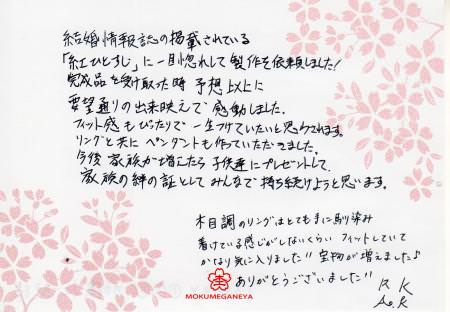 結婚情報誌の掲載されている
「紅ひとすじ」に一目惚れして製作を依頼しました!
完成品を受け取った時 予想以上に
要望通りの出来映えで感動しました。
フィット感もぴったりで一生つけていたいと思わされます。
リングと共にペンダントも作っていただきました。
今後 家族が増えたら子供達にプレゼントして、
家族の絆の証としてみんなで持ち続けようと思います。
木目調のリングはとても手に馴染み
着けている感じがしないくらい フィットしていて
かなり気に入りました!! 宝物が増えました♪
ありがとうございました!!
R K
A.K
MOKUMEGANEYA